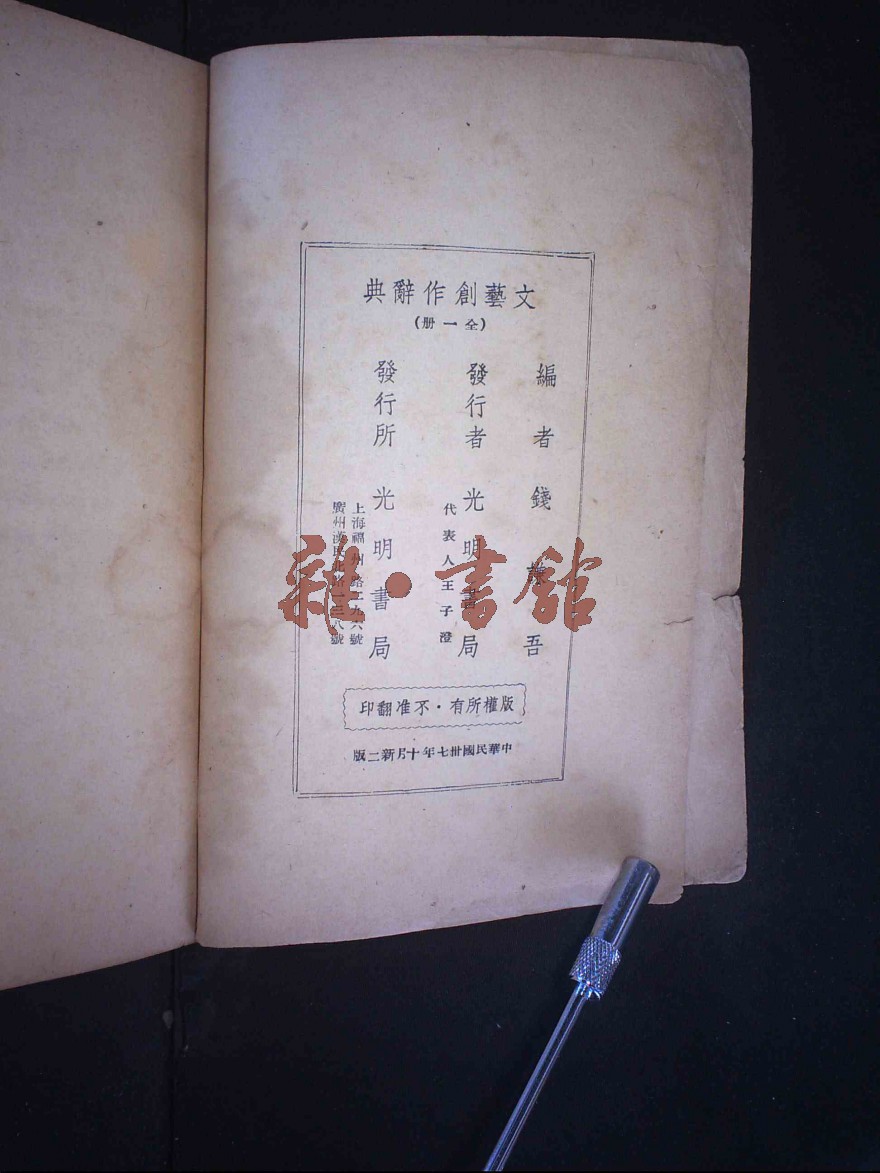 文藝創作辭典
(全一册)
編者 錢謙吾
發行者 光明書局
代表人王子澄
發行所 光明書局
上海福州路二九六號
廣州漢民北路一三八號
版權所有·不准翻印
中華民國卅七年十月新二版
雜·書館